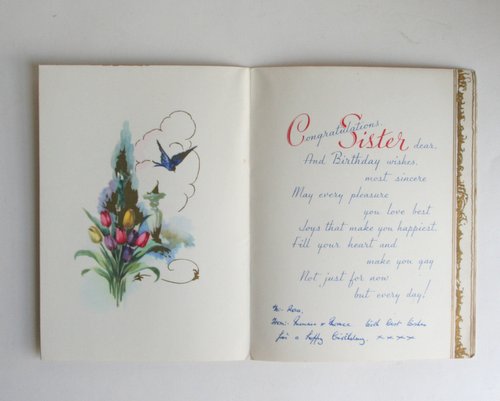 Congratulations Sister dear,
And Birthday wishes,
most sincere
May every pleasure
you love best
Joys that make you happiest,
Fill your heart and
make you gay
Not just for now
but every day!
To:-
From:- & With Best Wishes
for a Happy Birthday. x x x x